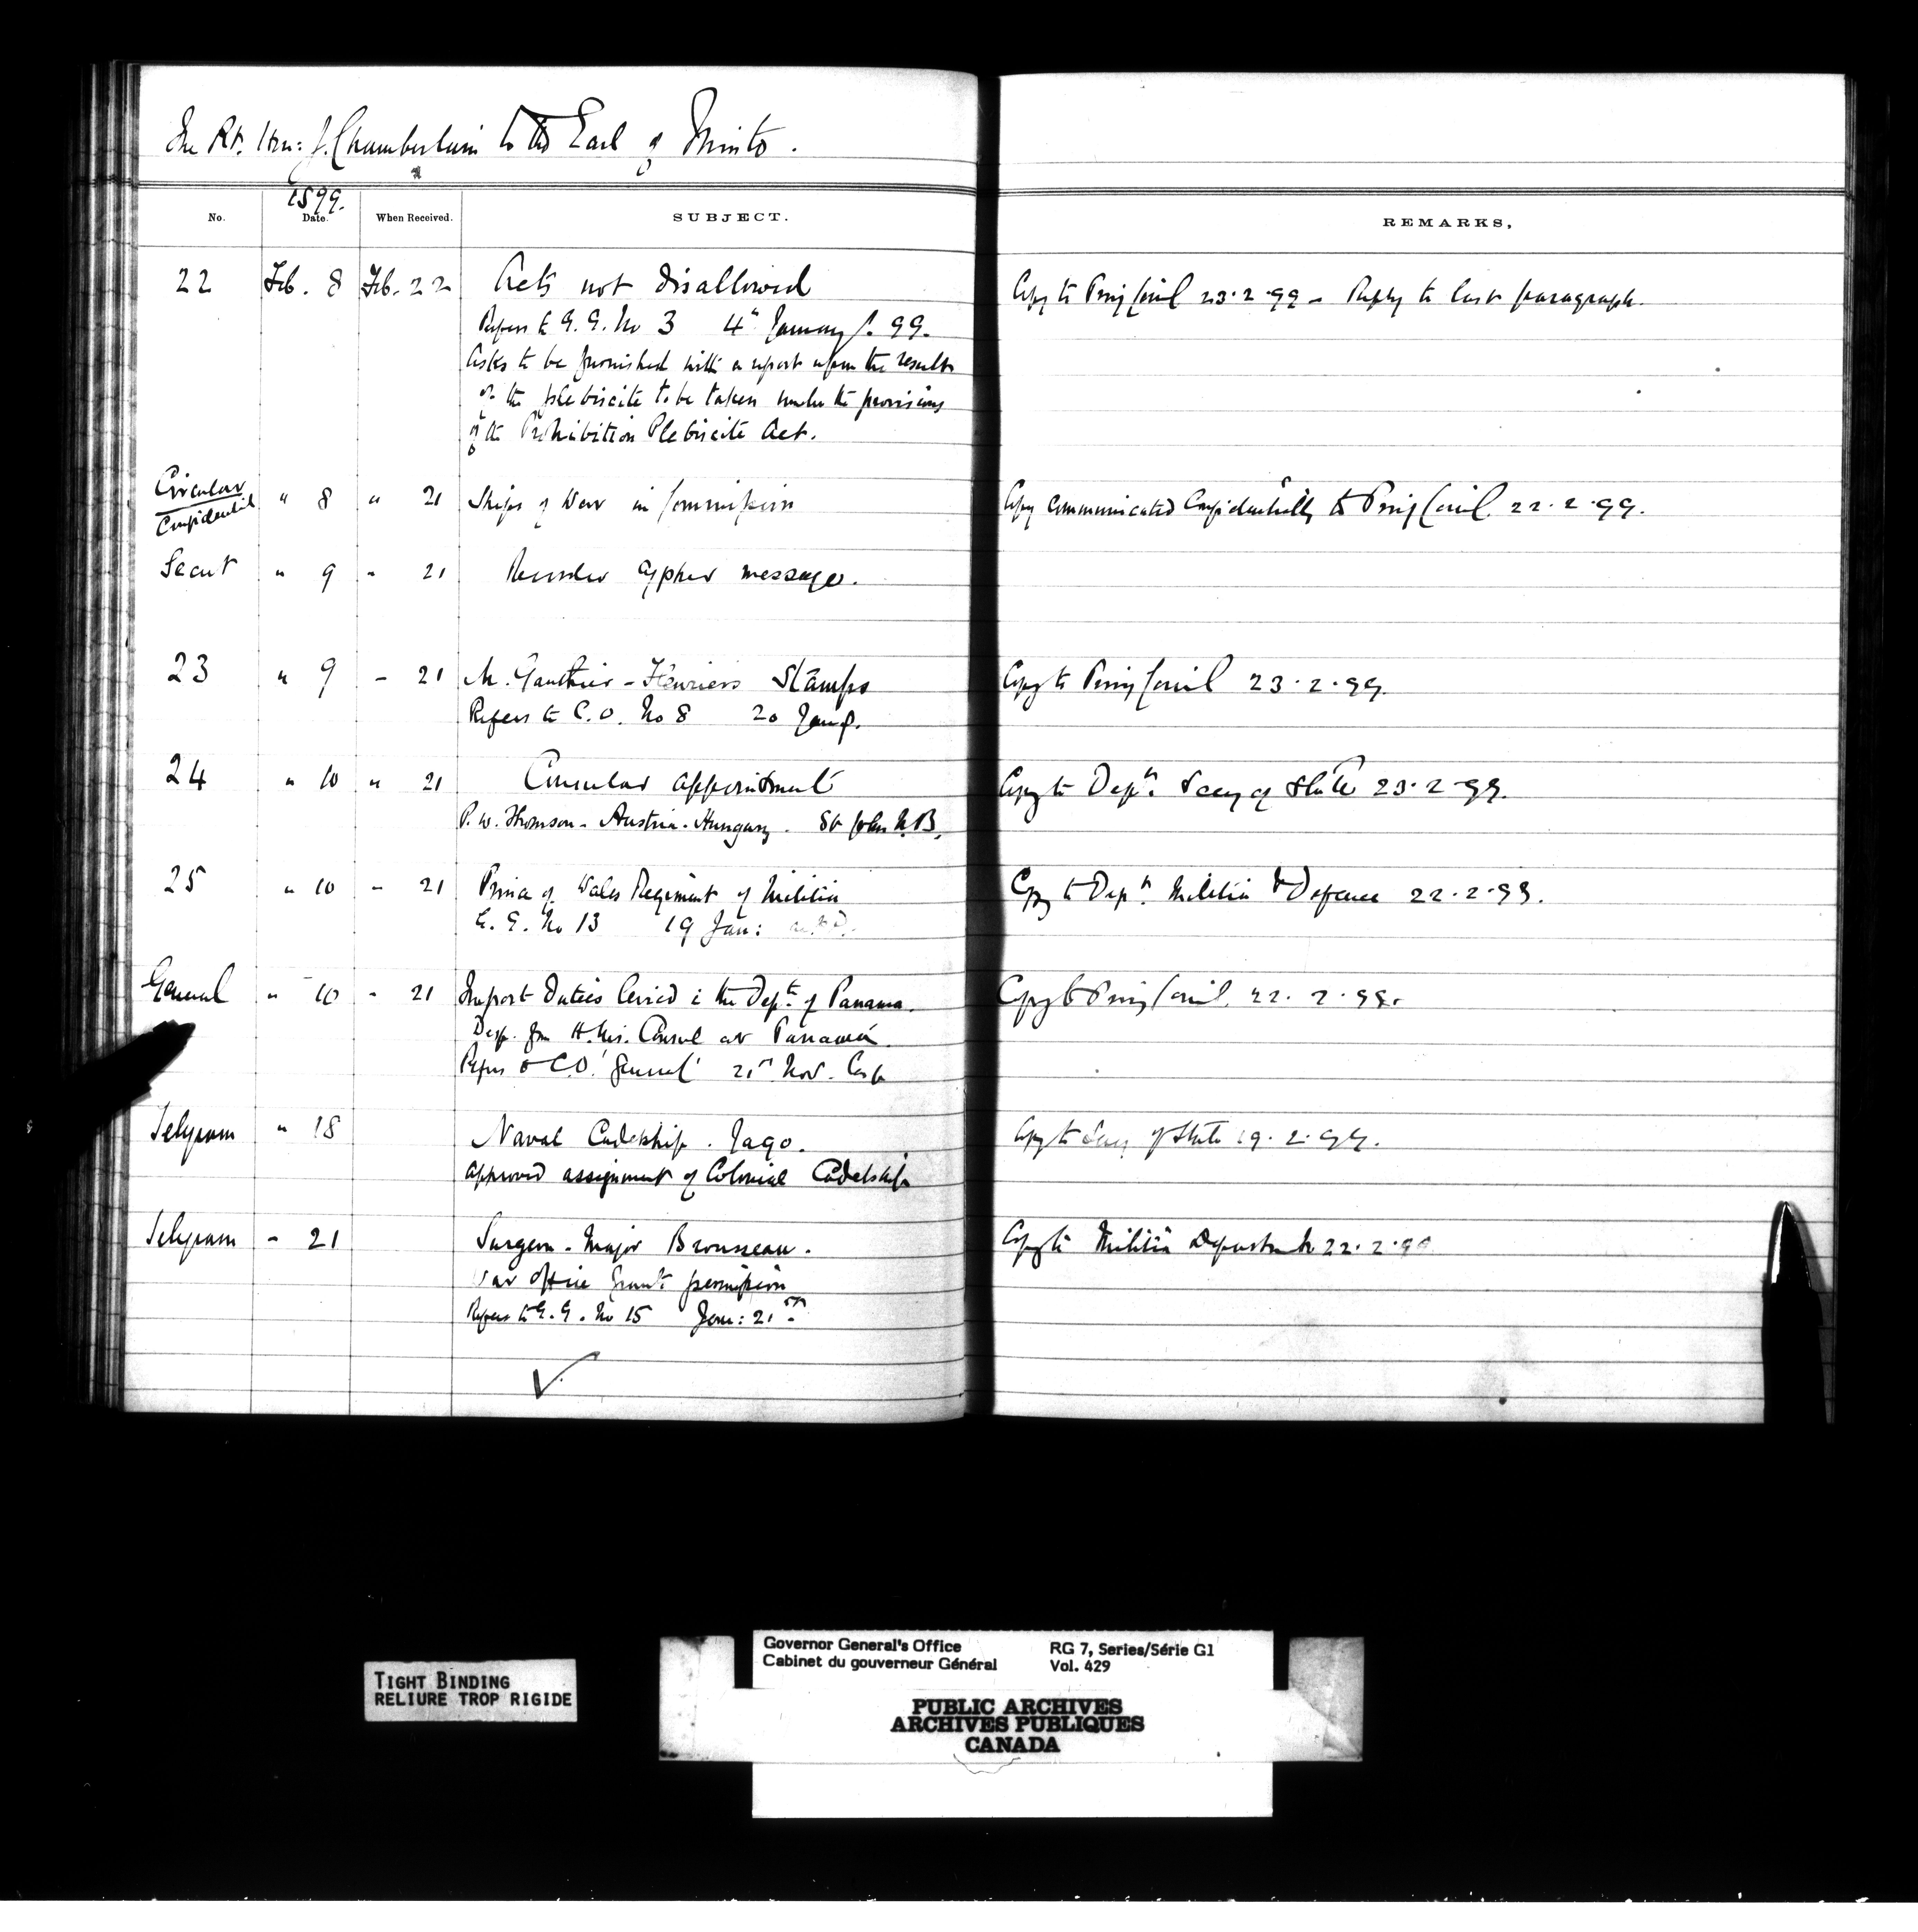 The Rt. Hon: J. Chamberlain to the Earl of Minto.
1899.
No. Date. When Received. SUBJECT. REMARKS.
22 Feb. 8 Feb. 22 Acts not disallowed Copy to Privy Council 23.2.99 - Reply to last paragraph.
Refers to G.G. No 3 4th January 99.
Asks to be furnished with a report upon the results
of the plebiscite to be taken under the provisions
of the Prohibition Plebiscite Act.
Circular
Confidential " 8 " 21 Ships of War in Commission Copy communicated Confidentially to Privy Council 22.2.99.
Secret " 9 " 21 cypher message.
23 " 9 - 21 M. Gauthier - Stamps Copy to Privy Council 23.2.99.
Refers to C.O. No 8 20 Jany.
24 " 10 " 21 Consular appointment Copy to Dept. Secy of State 23.2.99.
P.W. Thomson - Austria-Hungary - St John N.B.
25 " 10 - 21 Prince of Wales Regiment of Militia Copy to Dept. Militia & Defence 22.2.99.
G.G. No 13 19 Jan:
General " 10 - 21 Import Duties levied in the Dept. of Panama. Copy to Privy Council. 22.2.99.
Desp. from H.M's. Consul at Panama.
Refers to C.O. 'General' 21st Nov. last
Telegram " 18 Naval Cadetship. Jago. Copy to Secy of State 19.2.99.
Approved assignment of Colonial Cadetship
Telegram - 21 Surgeon-Major Brousseau. Copy to Militia Department 22.2.99
War Office grants permission
Refers to G.G. No 15 Jan: 21st
TIGHT BINDING
RELIURE TROP RIGIDE
Governor General's Office RG 7, Series/Série G1
Cabinet du gouverneur Général Vol. 429
PUBLIC ARCHIVES
ARCHIVES PUBLIQUES
CANADA